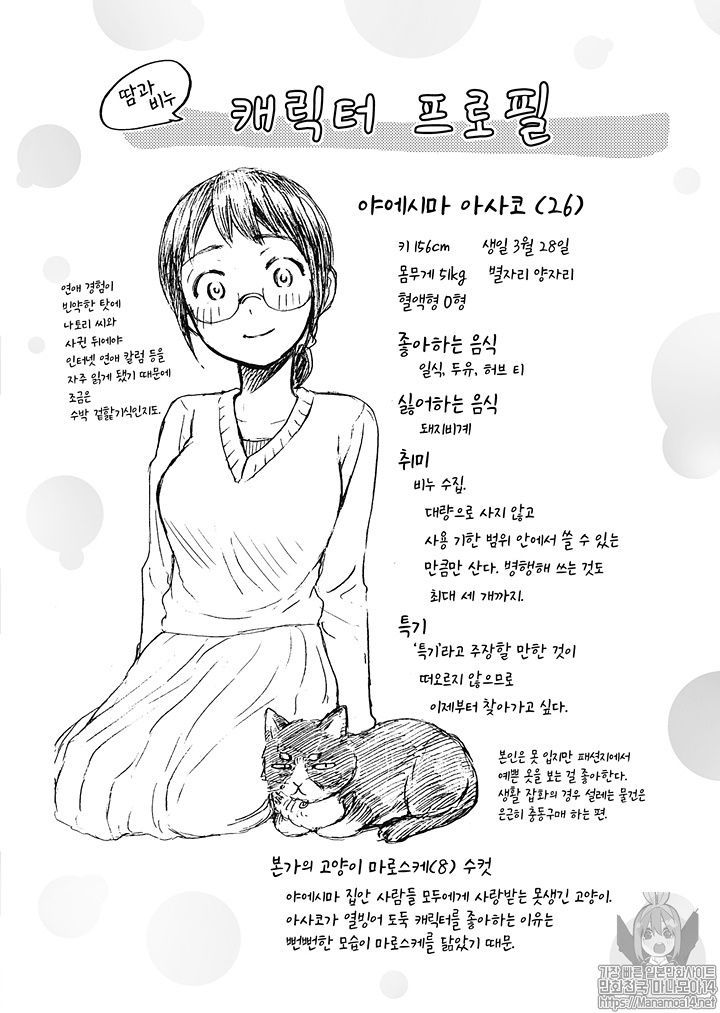 땀과
비누
캐릭터 프로필
야에시마 아사코 (26)
키 156cm 생일 3월 28일
몸무게 51kg 별자리 양자리
혈액형 O형
연애 경험이
빈약한 탓에
나토리 씨와
사귄 뒤에야
인터넷 연애 칼럼 등을
자주 읽게 됐기 때문에
조금은
수박 겉핥기식인지도.
좋아하는 음식
일식, 두유, 허브 티
싫어하는 음식
돼지비계
취미
비누 수집.
대량으로 사지 않고
사용 기한 범위 안에서 쓸 수 있는
만큼만 산다. 병행해 쓰는 것도
최대 세 개까지.
특기
'특기'라고 주장할 만한 것이
떠오르지 않으므로
이제부터 찾아가고 싶다.
본인은 못 입지만 패션지에서
예쁜 옷을 보는 걸 좋아한다.
생활 잡화의 경우 설레는 물건은
은근히 충동구매 하는 편.
본가의 고양이 마로스케(8) 수컷
야에시마 집안 사람들 모두에게 사랑받는 못생긴 고양이.
아사코가 열빙어 도둑 캐릭터를 좋아하는 이유는
뻔뻔한 모습이 마로스케를 닮았기 때문.
가장 빠른 일본만화사이트
만화천국 마나모아14
https://Manamoa14.net